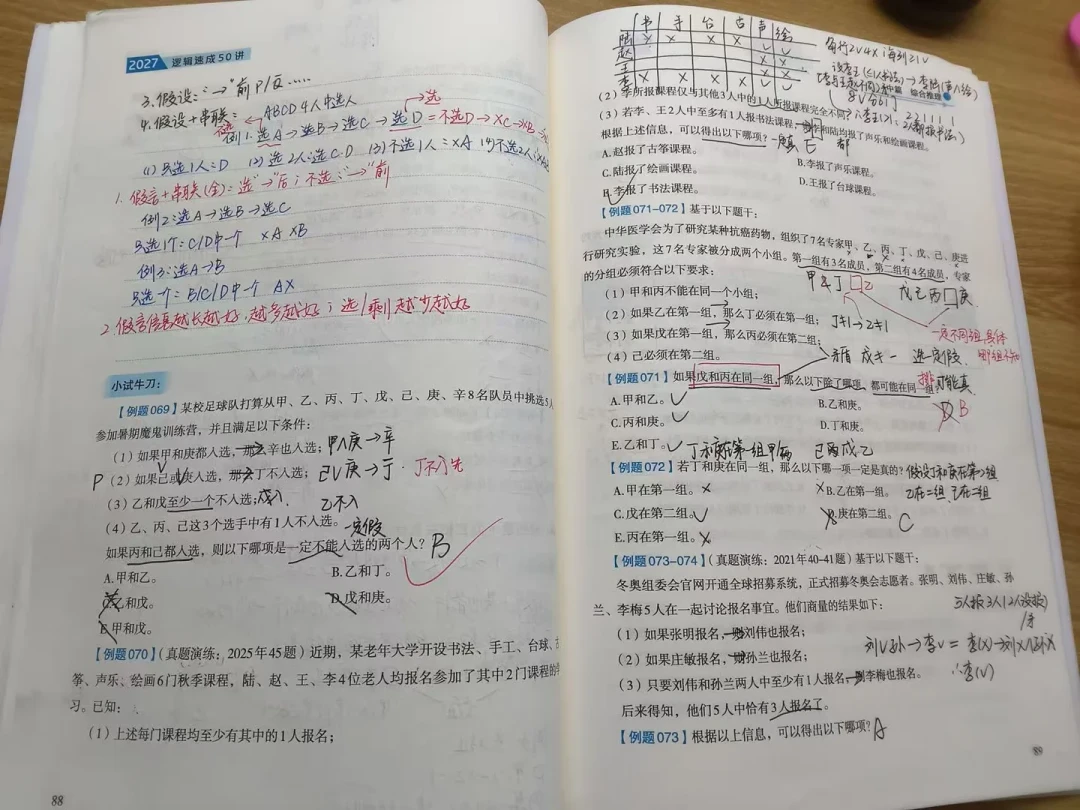 2027 逻辑速成50讲
3.假设:∵→"前P/Q……
4.假设+串联: ABCD 4人中选人
选
例1:选A→选B→选C→选D=不选D→×C→×B→
(1)只选1人:D (2)选2人:选C·D (3)不选1人:×A (4)不选2人:
1.假言+串联(全):选"→"后;不选:"→"前
例2:选A→选B→选C
只选1个:C/D中一个 ×A ×B
例3:选A→B
只选一个:B/C/D中一个 A×
2.假言信息越长越好,越多越好;选/剩越少越好
小试牛刀:
【例题069】某校足球队打算从甲、乙、丙、丁、戊、己、庚、辛8名队员中挑选5人
参加暑期魔鬼训练营,并且满足以下条件:
(1)如果甲和庚都入选,那么辛也入选; 甲∧庚→辛
P(2)如果己或庚入选,那么丁不入选; 己∨庚→丁 丁不入选
(3)乙和戊至少一个不入选; 戊入 乙不入
(4)乙、丙、己这3个选手中有1人不入选。 一定假
如果丙和己都入选,则以下哪项是一定不能入选的两个人? B
A.甲和乙。 B.乙和丁。
C.乙和戊。 D.戊和庚。
E.甲和戊。
【例题070】(真题演练:2025年45题)近期,某老年大学开设书法、手工、台球、古
筝、声乐、绘画6门秋季课程,陆、赵、王、李4位老人均报名参加了其中2门课程的学
习。已知:
(1)上述每门课程均至少有其中的1人报名;
88
书 手 台 古 声 绘
陆 × × × × ∨ ∨
赵 × ×
王 × ×
李 × × × × ∨ ∨
每行2∨4×;每列≥1∨
中篇 综合推理
(2)李所报课程仅与其他3人中的1人所报课程完全不同;
(3)若李、王2人中至多有1人报书法课程,则李和陆均报了声乐和绘画课程。
根据上述信息,可以得出以下哪项? 一真 E
A.赵报了古筝课程。 B.李报了声乐课程。
C.陆报了绘画课程。 D.王报了台球课程。
E.李报了书法课程。
【例题071-072】基于以下题干:
中华医学会为了研究某种抗癌药物,组织了7名专家甲、乙、丙、丁、戊、己、庚进
行研究实验,这7名专家被分成两个小组。第一组有3名成员,第二组有4名成员,专家
的分组必须符合以下要求: 甲 丁 乙 戊己丙 庚
(1)甲和丙不能在同一个小组;
(2)如果乙在第一组,那么丁必须在第一组; 丁≠1→乙≠1
(3)如果戊在第一组,那么丙必须在第二组; 一定不同组,具体
(4)己必须在第二组。 矛盾 戊≠一 选一定假
【例题071】如果戊和丙在同一组,那么以下除了哪项,都可能在同一组? 可能真
A.甲和乙。✓ B.乙和庚。
C.丙和庚。✓ D.丁和庚。 B
E.乙和丁。✓ 丁和庚在第一组甲丙 己丙戊乙
【例题072】若丁和庚在同一组,那么以下哪一项一定是真的? 假设丁和庚在第一组
A.甲在第一组。× ×B.乙在第一组。 乙在二组,己在二组
C.戊在第二组。✓ D.庚在第二组。 C
E.丙在第一组。×
【例题073-074】(真题演练:2021年40-41题)基于以下题干:
冬奥组委会官网开通全球招募系统,正式招募冬奥会志愿者。张明、刘伟、庄敏、孙
兰、李梅5人在一起讨论报名事宜。他们商量的结果如下: 五人报3人(2人没报)
(1)如果张明报名,则刘伟也报名; 刘∨孙→李∨=李(×)→刘×∧孙×
(2)如果庄敏报名,则孙兰也报名;
(3)只要刘伟和孙兰两人中至少有1人报名,则李梅也报名。 ∴李(∨)
后来得知,他们5人中恰有3人报名了。
【例题073】根据以上信息,可以得出以下哪项? A
89